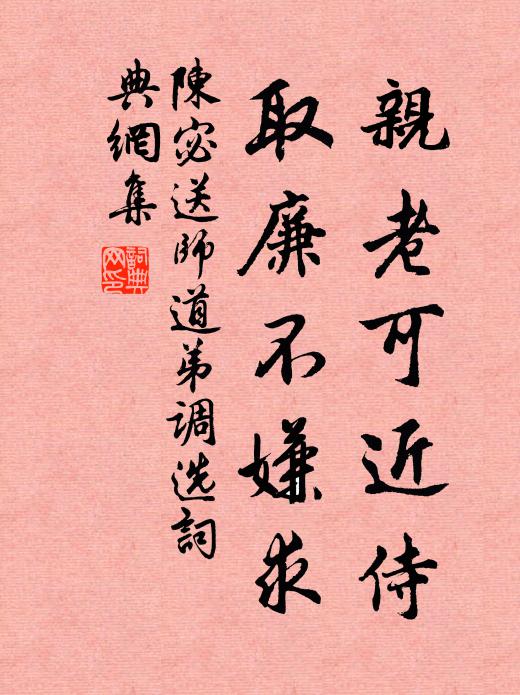 親老可近侍
取廉不嫌求
陳宓送師道弟調選詞
典網集
詞典
网印